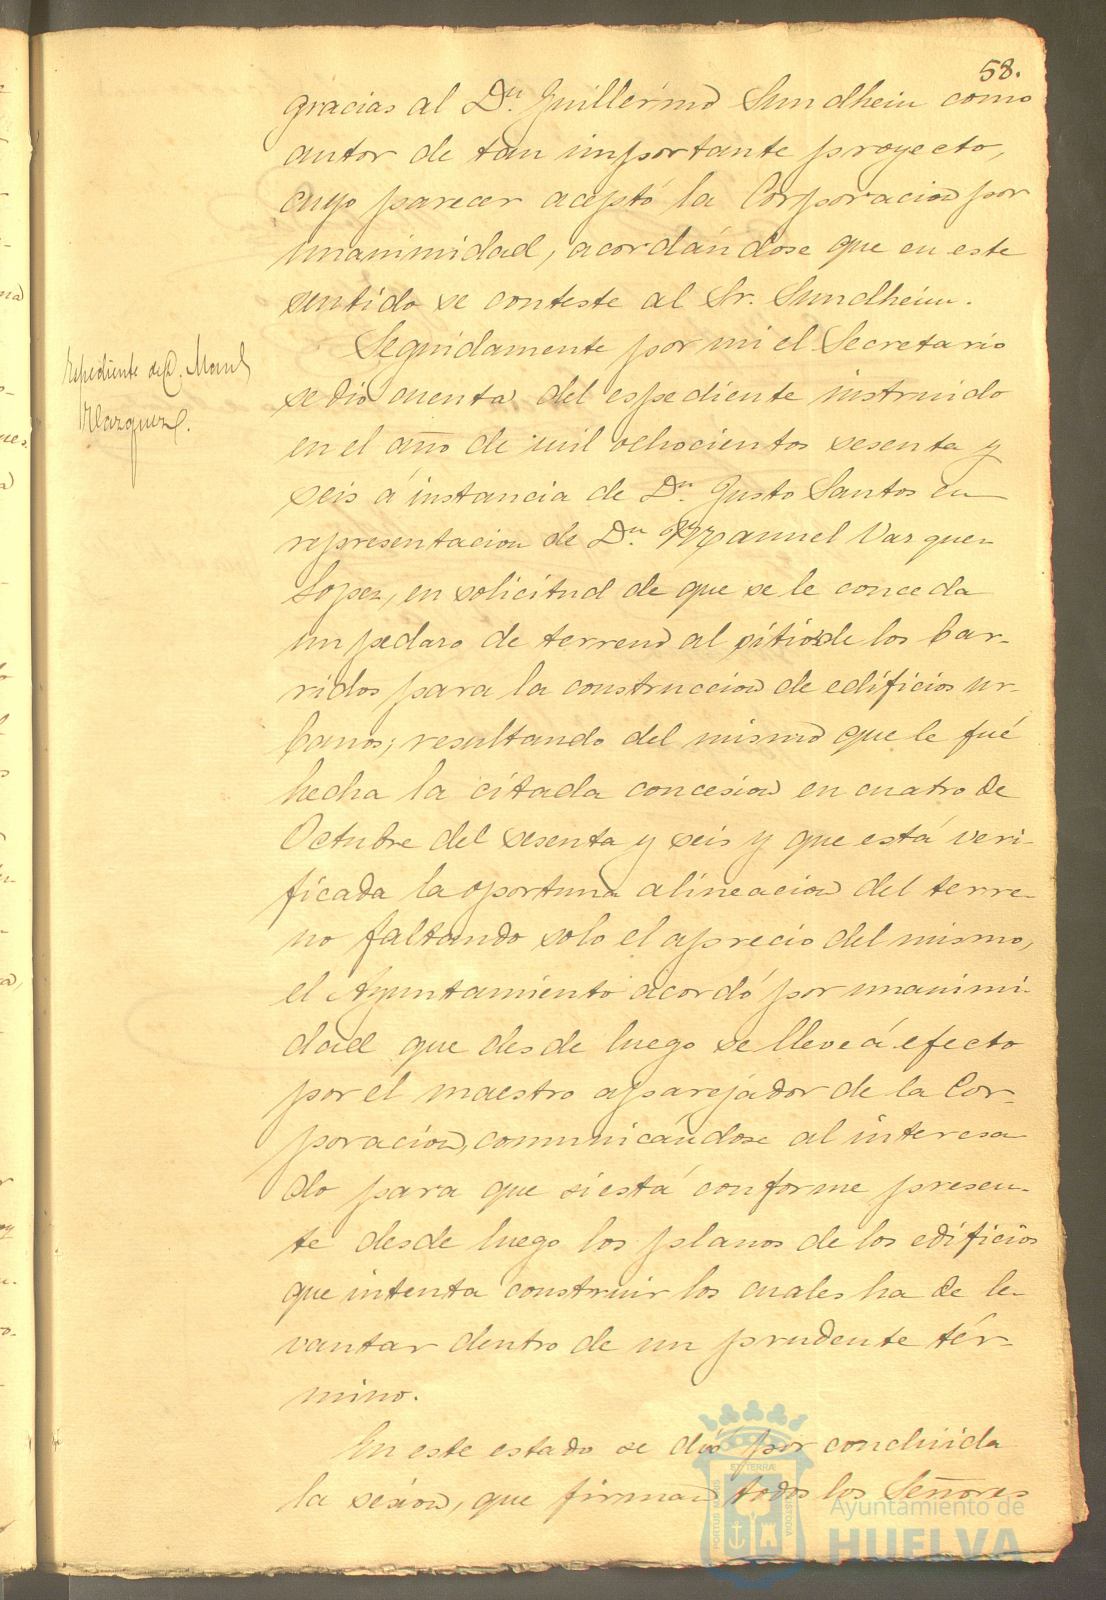 58.
gracias al Dn. Guillermo Sundhein como
autor de tan importante proyecto,
cuyo parecer aceptó la Corporacion por
unanimidad, acordándose que en este
sentido se conteste al Sr. Sundheim.
Espediente de D. Manl
Vazquez.
Seguidamente por mi el Secretario
se dió cuenta del espediente instruido
en el año de mil ochocientos sesenta y
seis á instancia de Dn. Justo Santos en
representacion de Dn. Manuel Vazquez
Lopez, en solicitud de que se le conceda
un pedazo de terreno al sitio de los bar-
ridos para la construccion de edificios ur-
banos; resultando del mismo que le fué
hecha la citada concesion en cuatro de
Octubre del sesenta y seis y que está veri-
ficada la oportuna alineacion del terre-
no faltando solo el aprecio del mismo,
el Ayuntamiento acordó por unanimi-
dad que desde luego se lleve á efecto
por el maestro aparejador de la Cor-
poracion, comunicándose al interesa
do para que si está conforme presen-
te desde luego los planos de los edificios
que intenta construir los cuales ha de le-
vantar dentro de un prudente tér-
mino.
En este estado se dió por concluida
la sesion, que firman todos los Señores
Ayuntamiento de
HUELVA